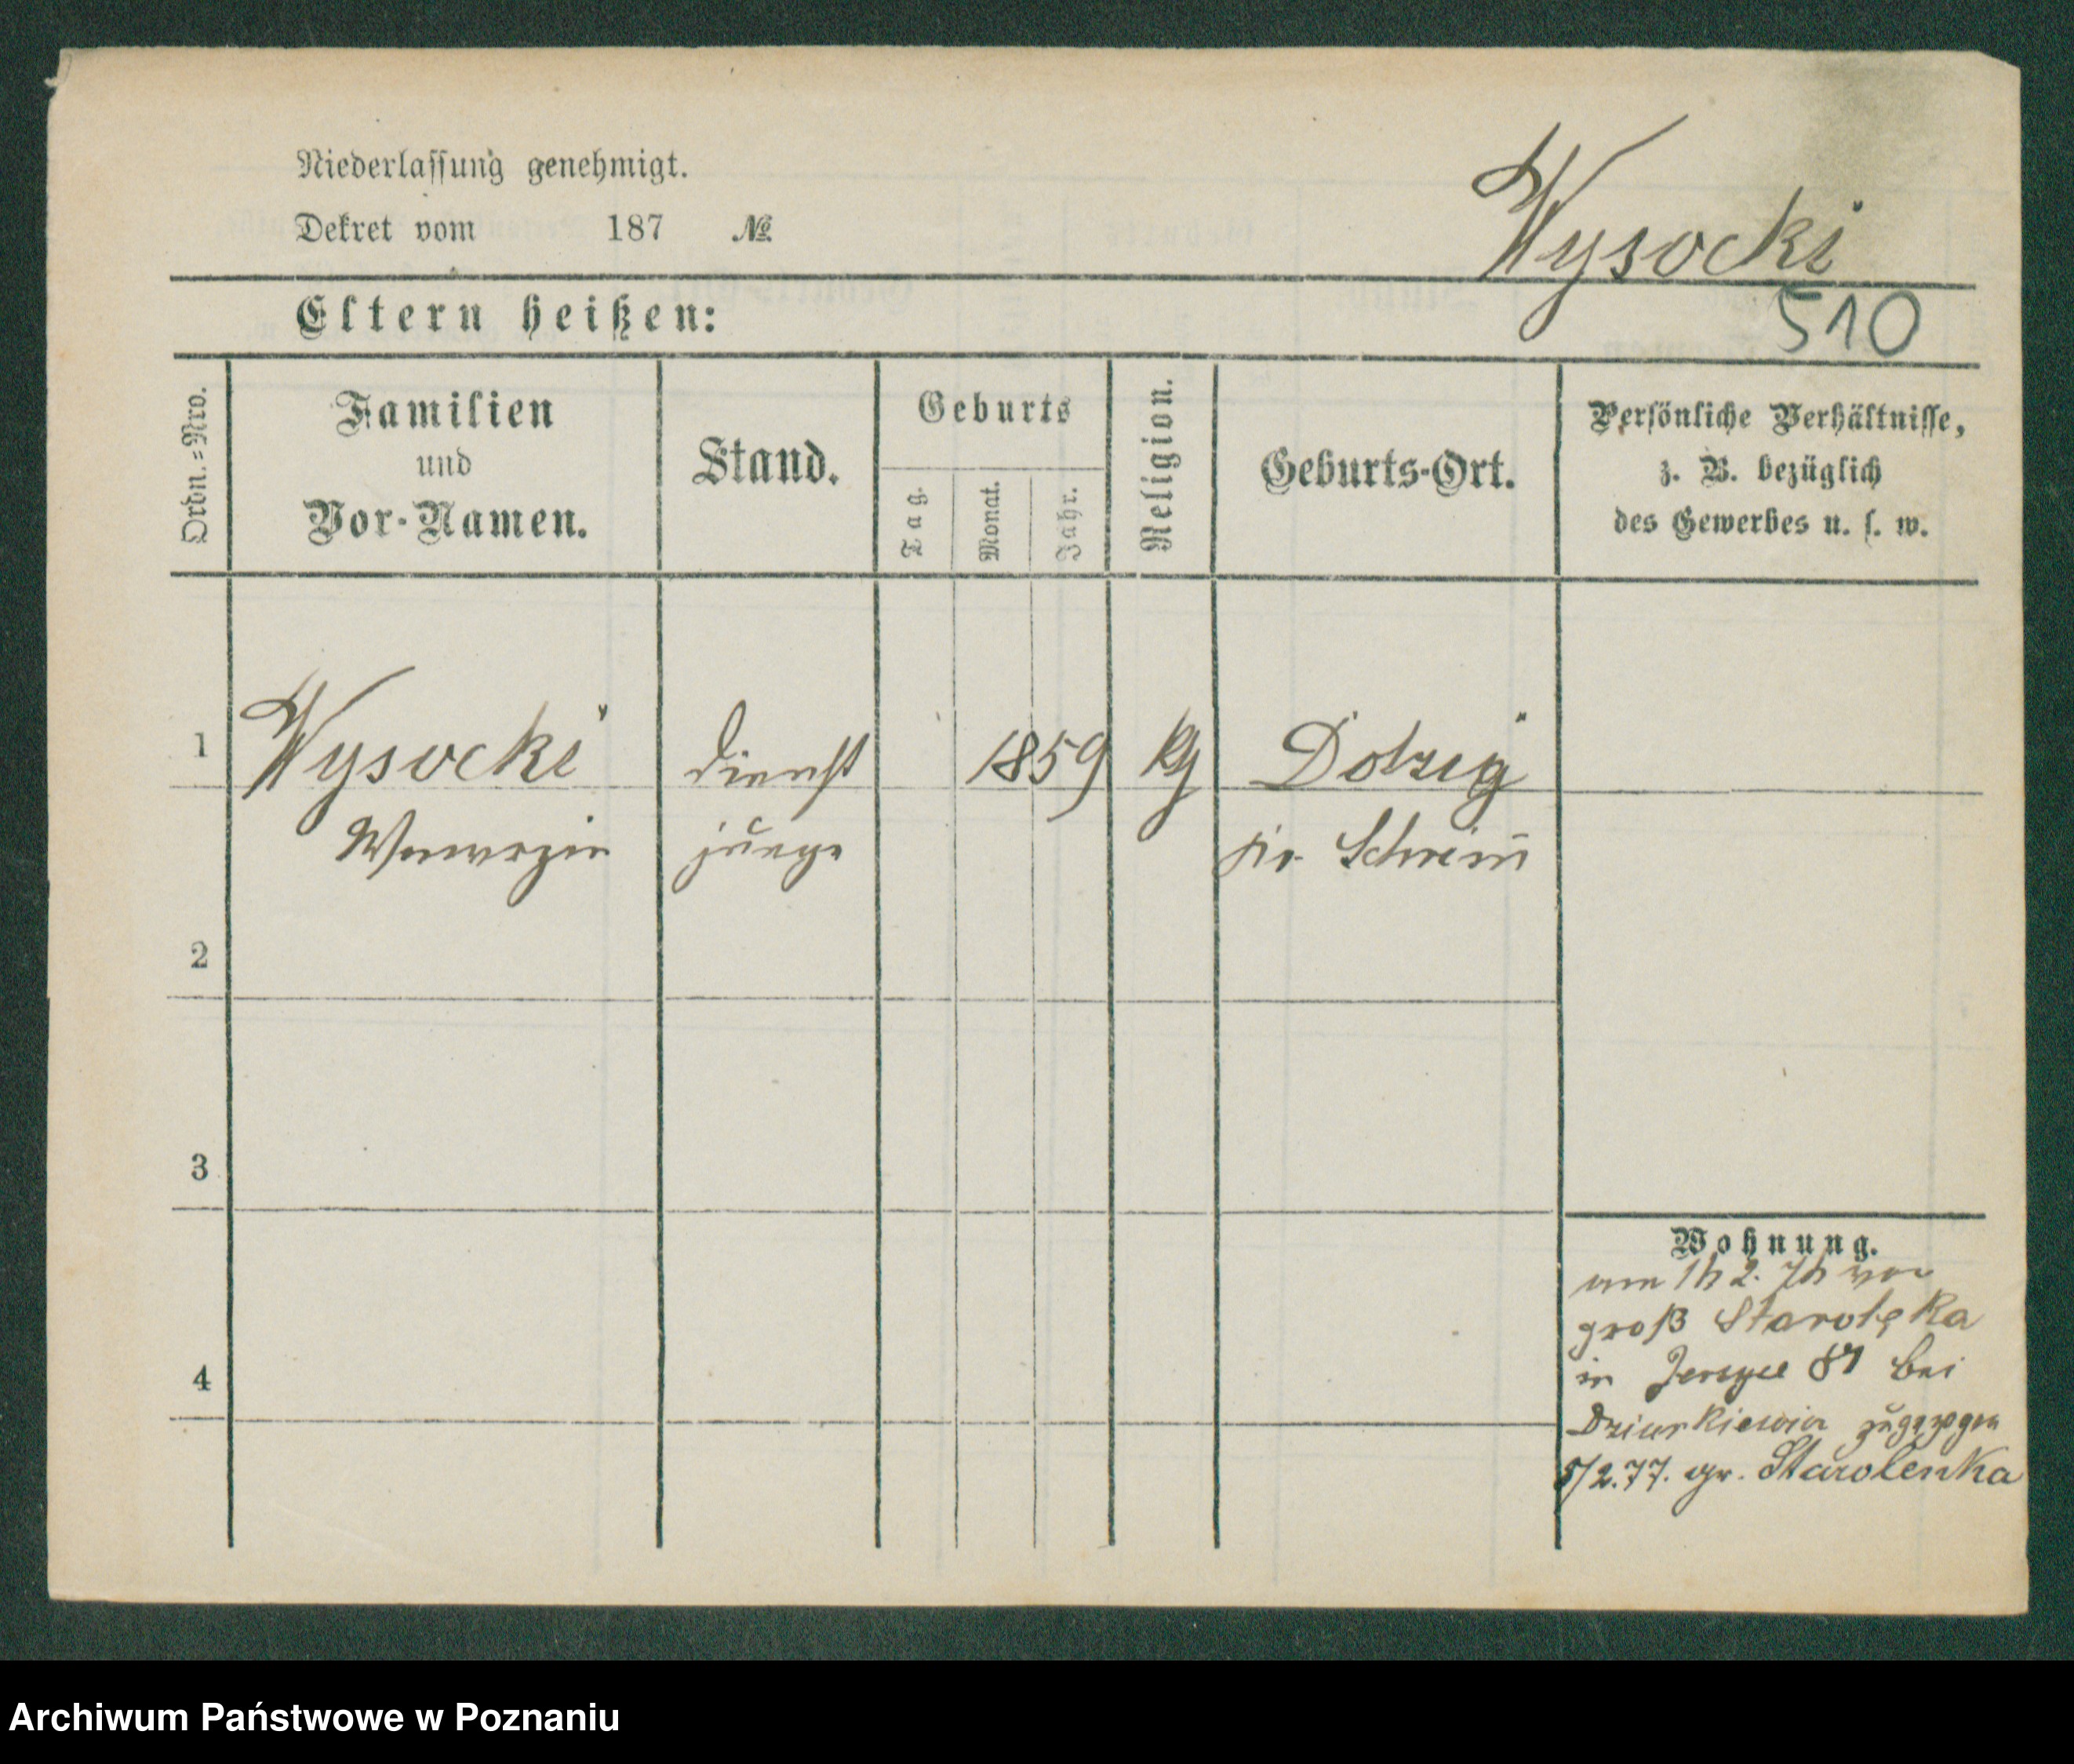 Niederlassung genehmigt.
Dekret vom 187 №
Wysocki
Eltern heißen:
510
Ordn.=Nro.
Familien
und
Vor-Namen.
Stand.
Geburts
Tag.
Monat.
Jahr.
Religion.
Geburts-Ort.
Persönliche Verhältnisse,
z. B. bezüglich
des Gewerbes u. s. w.
1 Wysocki Dienst 1859 Dolzig
Wawrzin junge Kr. Schrim̄
2
3
Wohnung.
am von
groß Starolęka
4
in Jerzyce 87 bei
zugezogen
5/2.77. gr. Starolenka
Archiwum Państwowe w Poznaniu